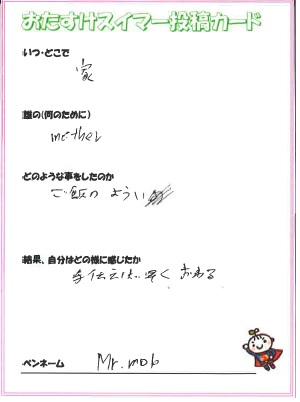 おたすけスイマー投稿カード
いつ・どこで
家
誰の(何のために)
mother
どのような事をしたのか
ご飯のようい
結果、自分はどの様に感じたか
手伝えば早くおわる
ペンネーム
Mr.mob